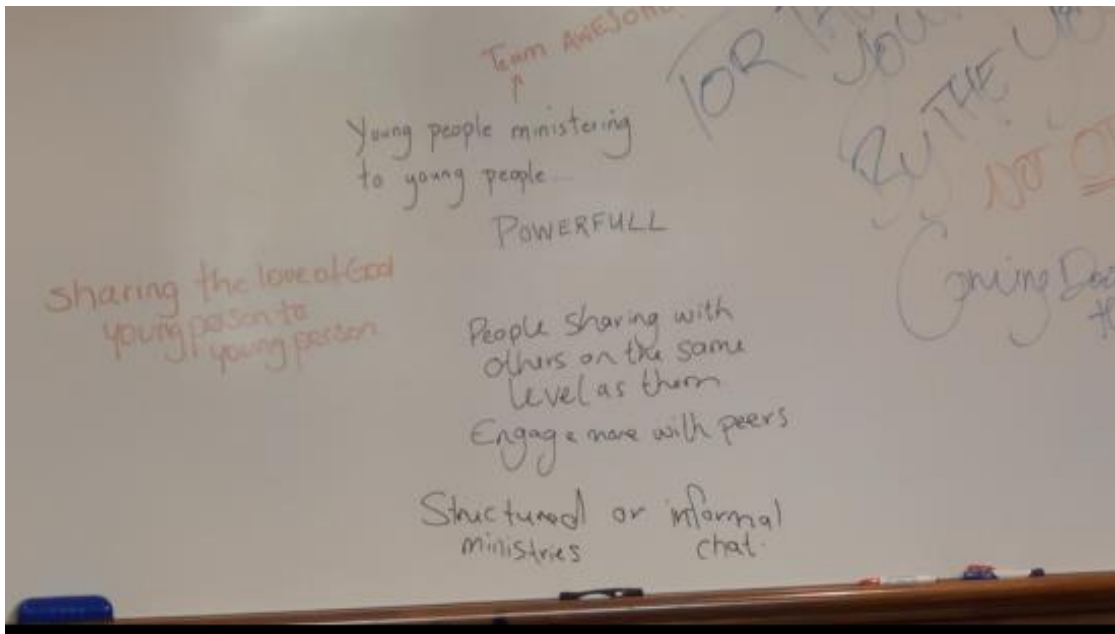 Team AWESOME
Young people ministering
to young people...
POWERFULL
sharing the love of God
young person to
young person
People sharing with
others on the same
level as them
Engage more with peers
Structured or informal
ministries chat.
FOR
YOU
BY THE
NOT
Coming